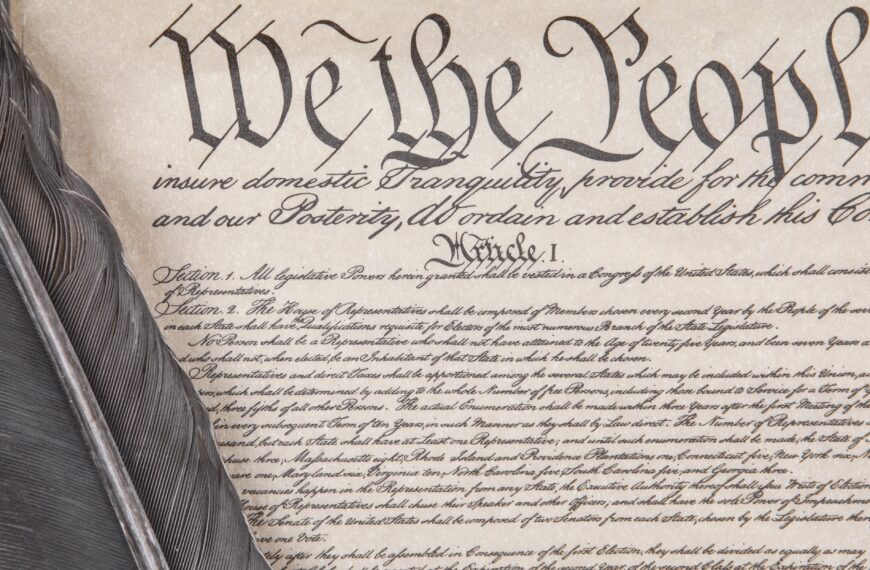 We the People
insure domestic Tranquility, provide for the comm
and our Posterity, do ordain and establish this Co
Article. I.
Section. 1. All legislative Powers herein granted shall be vested in a Congress of the United States, which shall consist
of Representatives.
Section. 2. The House of Representatives shall be composed of Members chosen every second Year by the People of the seve
in each State shall have Qualifications requisite for Electors of the most numerous Branch of the State Legislature.
No Person shall be a Representative who shall not have attained to the Age of twenty five Years, and been seven Years a
d who shall not, when elected, be an Inhabitant of that State in which he shall be chosen.
Representatives and direct Taxes shall be apportioned among the several States which may be included within this Union, ac
, which shall be determined by adding to the whole Number of free Persons, including those bound to Service for a Term of Y
d, three fifths of all other Persons. The actual Enumeration shall be made within three Years after the first Meeting of the
in every subsequent Term of ten Years, in such Manner as they shall by Law direct. The Number of Representatives
usand, but each State shall have at Least one Representative; and until such enumeration shall be made, the State of
use three, Massachusetts eight, Rhode Island and Providence Plantations one, Connecticut five, New York six, N
one, Maryland six, Virginia ten, North Carolina five, South Carolina five, and Georgia three.
vacancies happen in the Representation from any State, the Executive Authority thereof shall issue Writs of Election
House of Representatives shall chuse their Speaker and other Officers; and shall have the sole Power of Impeachmen
The Senate of the United States shall be composed of two Senators from each State, chosen by the Legislature there
ve one Vote.
ly after they shall be assembled in Consequence of the first Election, they shall be divided as equally as may
at the Expiration of the second Year, of the second Class at the Expiration of the